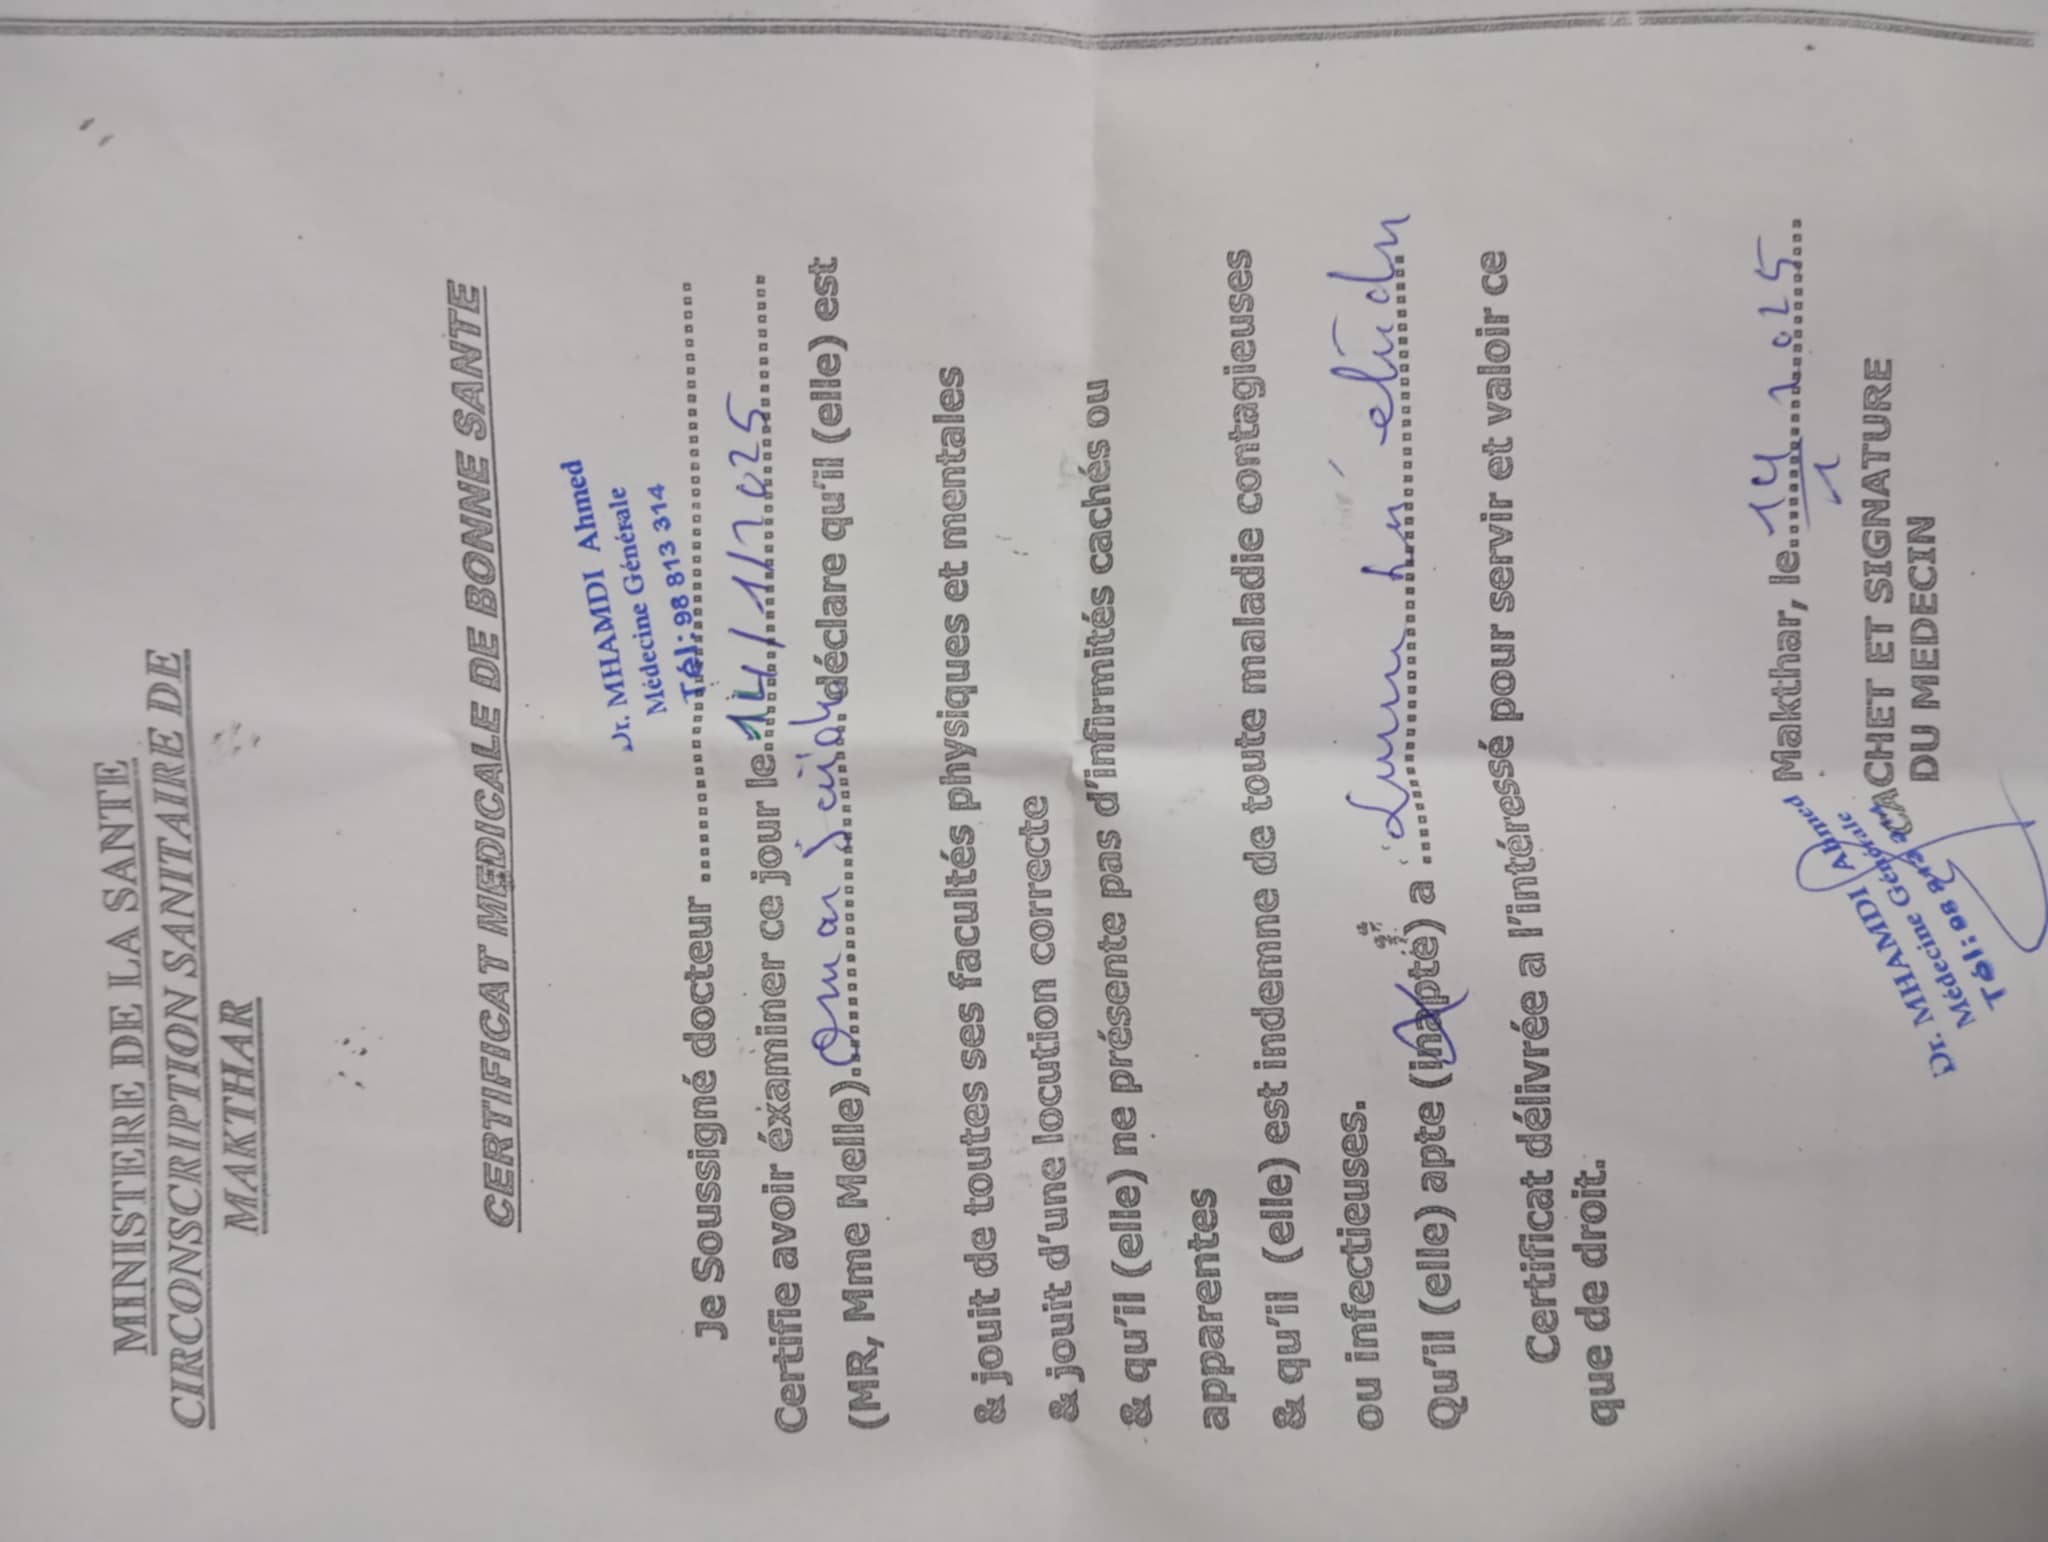 MINISTERE DE LA SANTE
CIRCONSCRIPTION SANITAIRE DE
MAKTHAR
CERTIFICAT MEDICALE DE BONNE SANTE
Dr. MHAMDI Ahmed
Médecine Générale
Tél: 98 813 314
Je Soussigné docteur
Certifie avoir éxaminer ce jour le 14/1/2025
(MR, Mme Melle). Omar déclare qu'il (elle) est
& jouit de toutes ses facultés physiques et mentales
& jouit d'une locution correcte
& qu'il (elle) ne présente pas d'infirmités cachés ou
apparentes
& qu'il (elle) est indemne de toute maladie contagieuses
ou infectieuses.
Qu'il (elle) apte (inapte) a
Certificat délivrée a l'intéressé pour servir et valoir ce
que de droit.
Makthar, le 14 1 2025
CACHET ET SIGNATURE
DU MEDECIN
Dr. MHAMDI Ahmed
Médecine Générale
Tél: 98